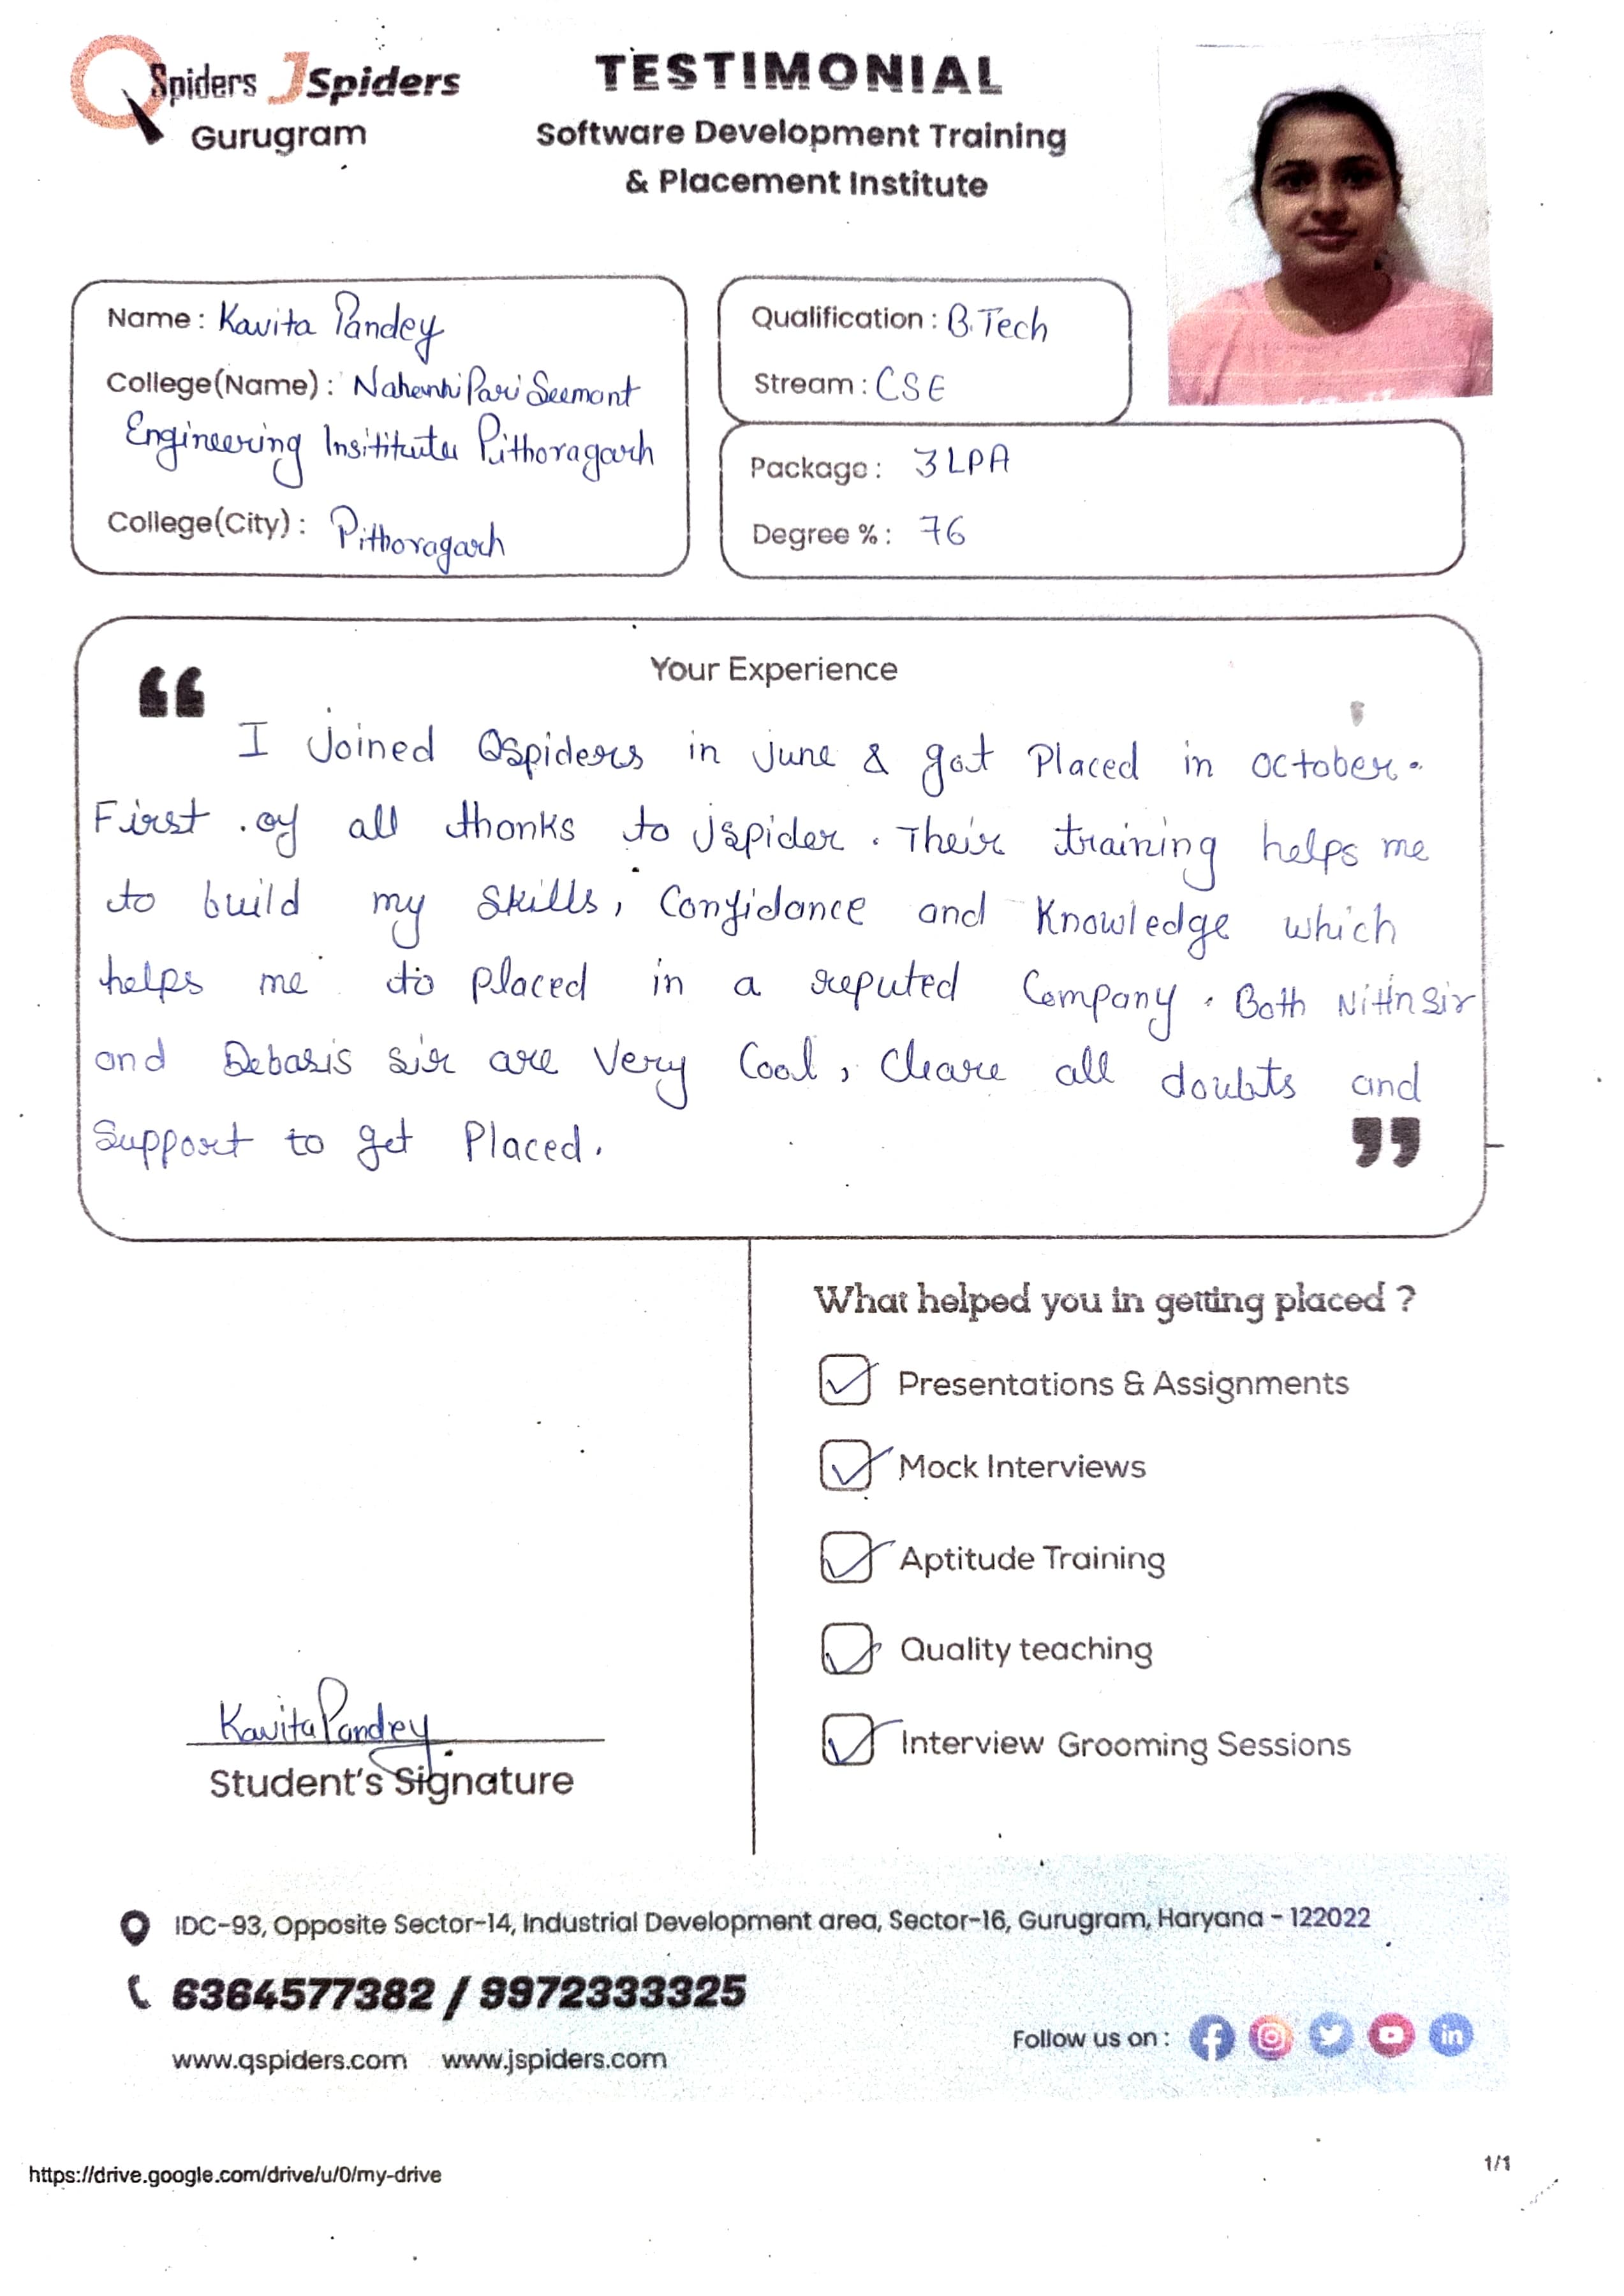 QSpiders JSpiders
Gurugram
TESTIMONIAL
Software Development Training
& Placement Institute
Name : Kavita Pandey
College(Name) : Nahanhi Pari Seemant
Engineering Insititute Pithoragarh
College(City) : Pithoragarh
Qualification : B.Tech
Stream : CSE
Package : 3 LPA
Degree % : 76
Your Experience
“
I joined Qspiders in june & got Placed in october.
First of all thanks to jspider. Their training helps me
to build my skills, Confidance and Knowledge which
helps me to placed in a reputed Company. Both Nitin sir
and Debasis sir are Very Cool, Cleare all doubts and
Support to get Placed.
”
What helped you in getting placed ?
Presentations & Assignments
Mock Interviews
Aptitude Training
Quality teaching
Interview Grooming Sessions
Kavita Pandey
Student's Signature
IDC-93, Opposite Sector-14, Industrial Development area, Sector-16, Gurugram, Haryana - 122022
6364577382 / 9972333325
www.qspiders.com www.jspiders.com
Follow us on :
https://drive.google.com/drive/u/0/my-drive
1/1